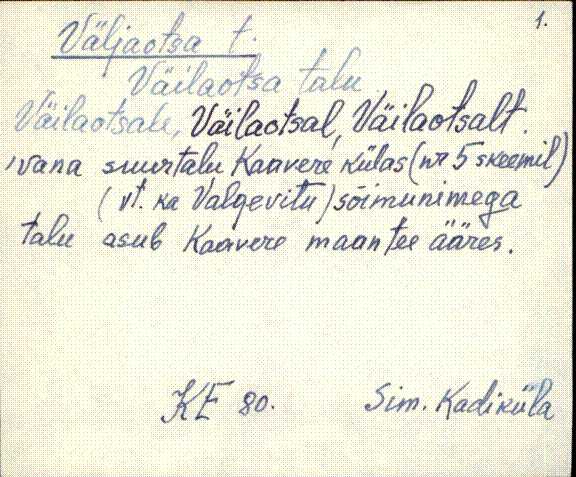 1.
Väljaotsa t.
Väilaotsa talu
Väilaotsale, Väilaotsal, Väilaotsalt.
vana suurtalu Kaavere külas (nr 5 skeemil)
(vt. ka Valgevitu) sõimunimega
talu asub Kaavere maantee ääres.
KE 80. Sim. Kadiküla